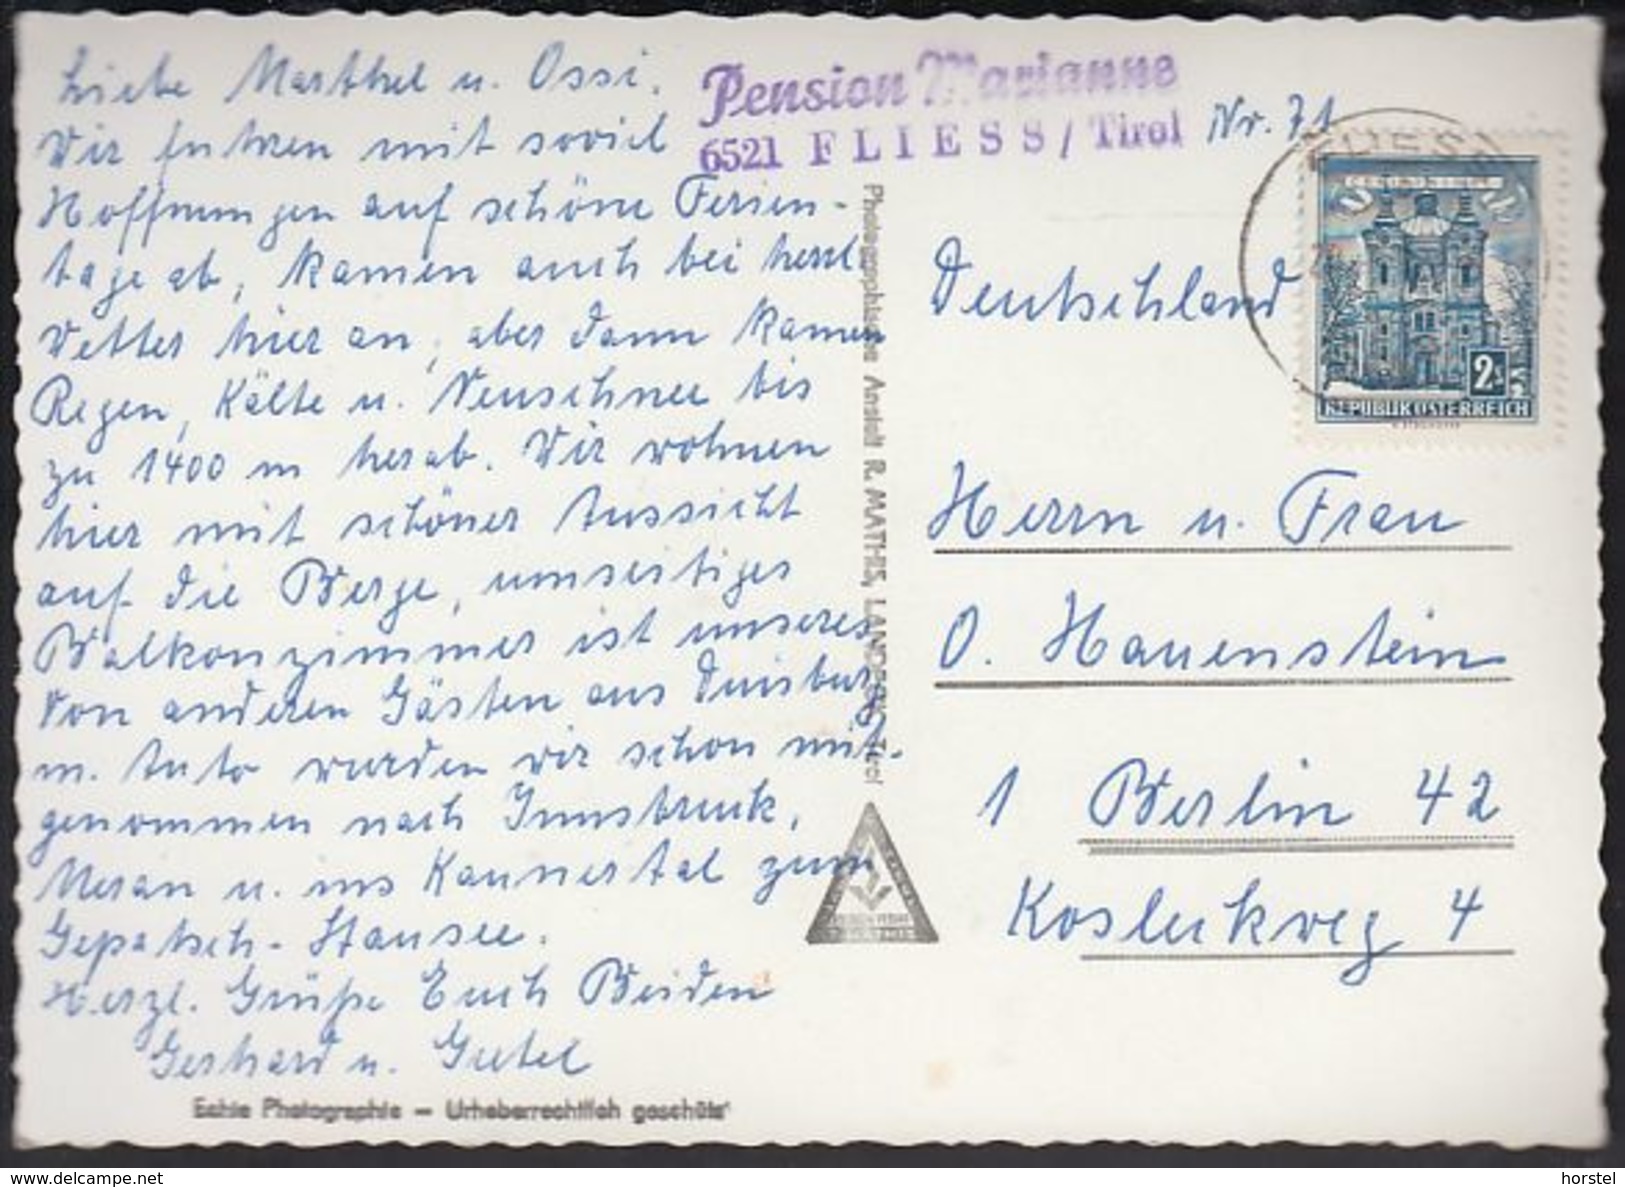 Liebe Marthel u. Ossi,
Wir fuhren mit soviel
Hoffnungen auf schöne Ferien-
tage ab, kamen auch bei herrl.
Wetter hier an, aber dann kamen
Regen, Kälte u. Neuschnee bis
zu 1400 m herab. Wir wohnen
hier mit schöner Aussicht
auf die Berge, umseitiges
Balkonzimmer ist unseres.
Von anderen Gästen aus Duisburg
m. Auto wurden wir schon mit-
genommen nach Innsbruck,
Meran u. ins Kaunertal zum
Gepatsch-Stausee.
Herzl. Grüße Euch Beiden
Gerhard u. Gretel
Echte Photographie – Urheberrechtlich geschützt
Pension Marianne
6521 FLIESS / Tirol
Nr. 71
Photographische Anstalt R. MATHIS, LANDECK, Tirol
FLIESS
2 S
REPUBLIK ÖSTERREICH
Deutschland
Herrn u. Frau
O. Hauenstein
1 Berlin 42
Kosleckweg 4
horstel